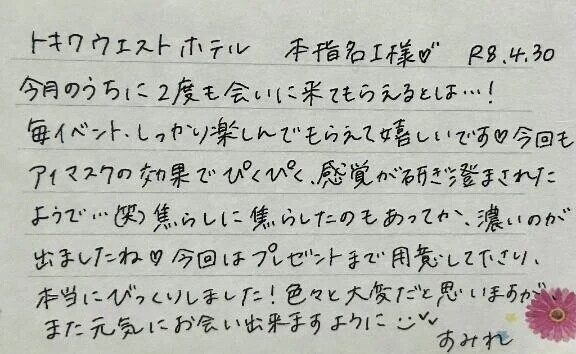 トキワウエストホテル 本指名I様♡ R8.4.30
今月のうちに2度も会いに来てもらえるとは…!
毎イベント、しっかり楽しんでもらえて嬉しいです♡今回も
アイマスクの効果でぴくぴく、感覚が研ぎ澄まされた
ようで…(笑)焦らしに焦らしたのもあってか、濃いのが
出ましたね♡今回はプレゼントまで用意して下さり、
本当にびっくりしました!色々と大変だと思いますが、
また元気にお会い出来ますように
すみれ